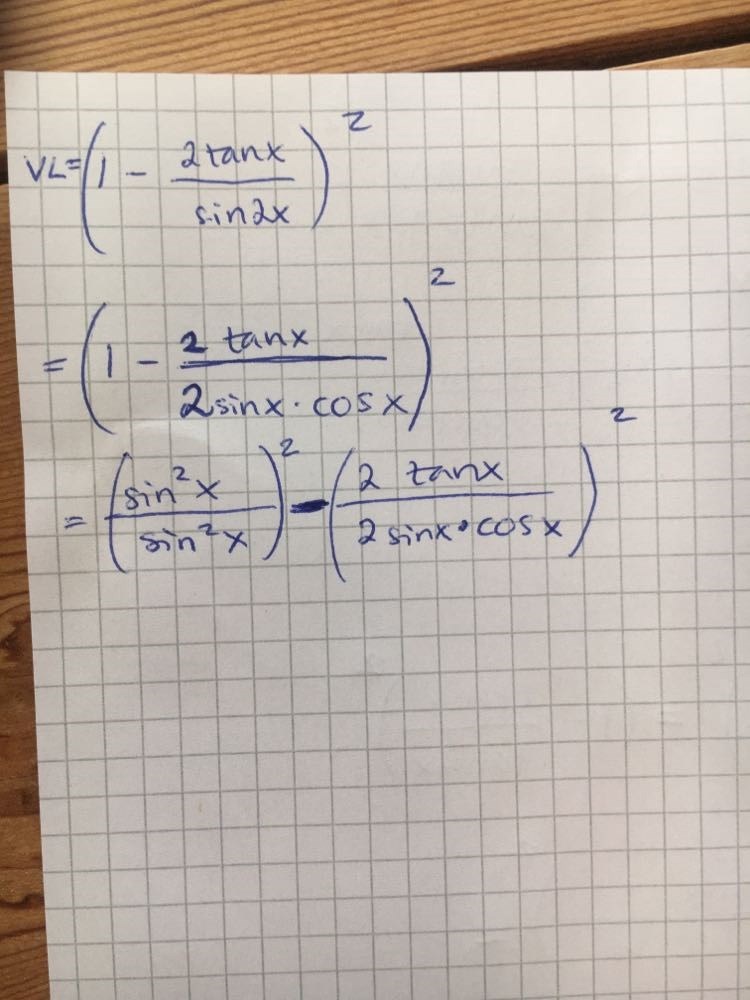 VL = (1 - 2tanx / sin2x)²
= (1 - 2 tanx / 2sinx · cosx)²
= (sin²x / sin²x)² - (2 tanx / 2sinx · cosx)²